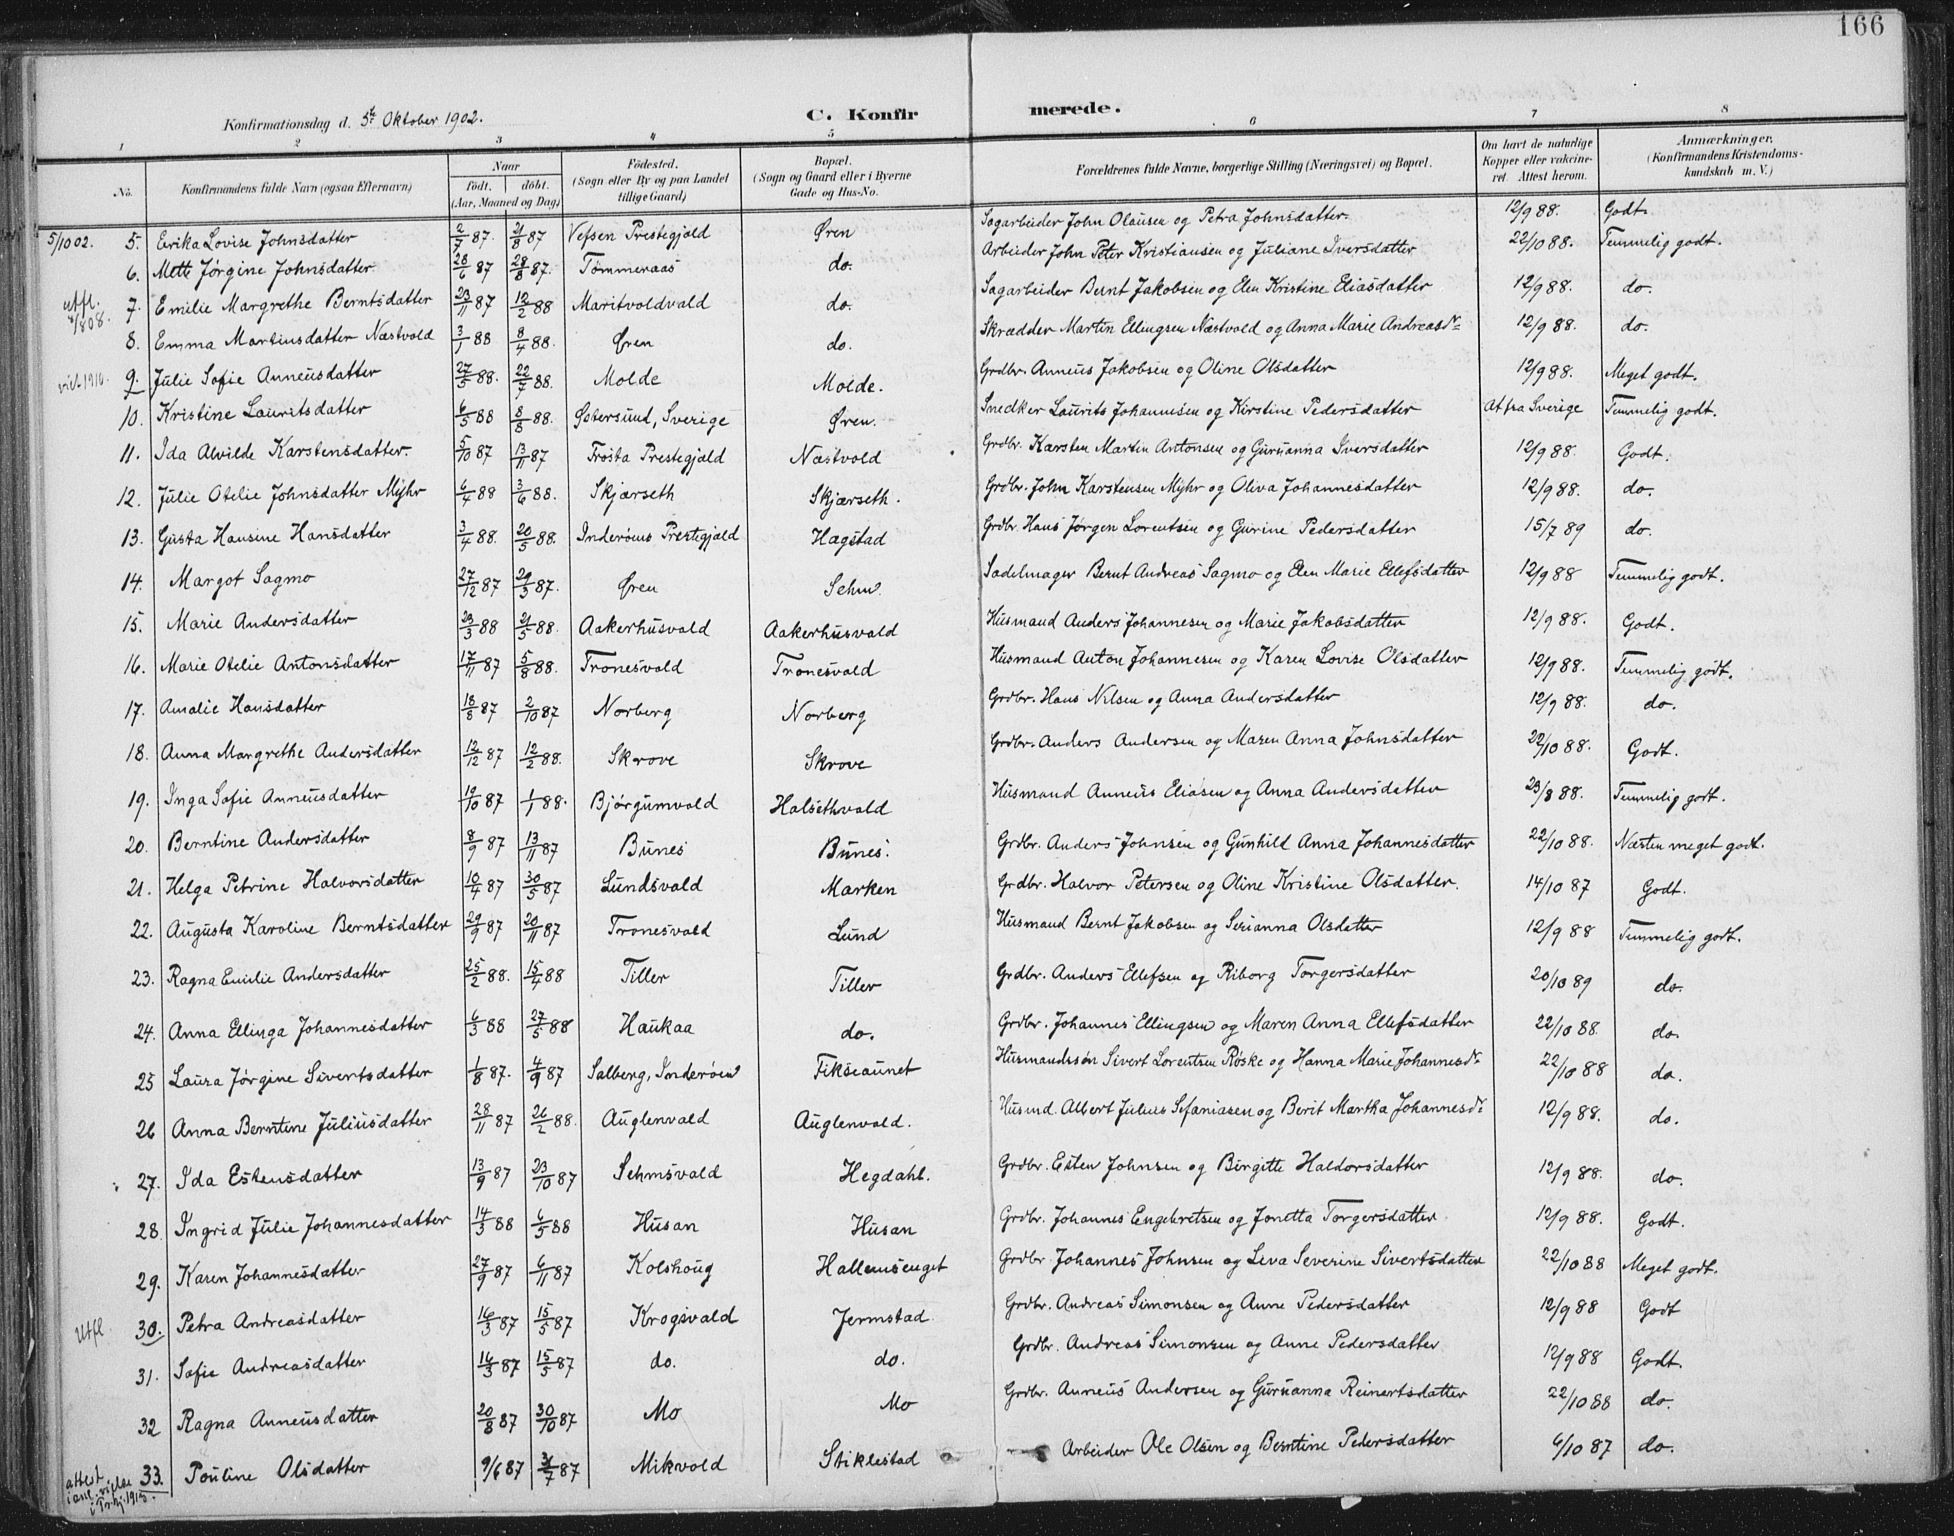 166
Konfirmationsdag d. 5te Oktober 1902.
C. Konfirmerede.
1 2 3 4 5 6 7 8
No. Konfirmandens fulde Navn (ogsaa Efternavn) Naar født. døbt. (Aar, Maaned og Dag) Fødested. (Sogn eller By og paa Landet tillige Gaard) Bopæl. (Sogn og Gaard eller i Byerne Gade og Hus-No. Forældrenes fulde Navne, borgerlige Stilling (Næringsvei) og Bopæl. Om havt de naturlige Kopper eller vakcineret. Attest herom. Anmærkninger, (Konfirmandens Kristendomskundskab m. V.)
5/10 02. 5. Erika Lovise Johnsdatter 2/7 87. 21/8 87 Vefsen Prestegjæld Øren Sagarbeider John Olausen og Petra Johnsdatter. 12/9 88. Godt.
6. Mette Jørgine Johnsdatter 28/6 87 28/8 87. Tømmeraas do. Arbeider John Peter Kristiansen og Juliane Iversdatter 22/10 88. Temmelig godt.
utfl. 7. Emilie Margrethe Berntsdatter 23/11 87 12/2 88 Maritvoldvald do. Sagarbeider Bernt Jakobsen og Elen Kristine Eliasdatter 12/9 88. do.
8. Emma Martinsdatter Næstvold 3/1 88 8/4 88. Øren do. Skrædder Martin Ellingsen Næstvold og Anna Marie Andreasdr 12/9 88. do.
9. Julie Sofie Anneusdatter 27/5 88. 22/7 88. Molde Molde. Grdbr. Anneus Jakobsen og Oline Olsdatter 12/9 88. Meget godt.
10. Kristine Lauritsdatter 6/5 88 8/8 88. Østersund, Sverige Øren. Snedker Laurits Johannesen og Kirstine Pedersdatter At fra Sverige Temmelig godt.
11. Ida Alvilde Karstensdatter. 5/10 87 13/11 87 Frosta Prestegjæld Næstvold Grdbr. Karsten Martin Antonsen og Guruanna Iversdatter 12/9 88. Godt.
12. Julie Otelie Johnsdatter Myhr 6/4 88 3/6 88. Skjærseth Skjærseth. Grdbr. John Karstensen Myhr og Oliva Johannesdatter 12/9 88. do.
13. Gusta Hansine Hansdatter 3/4 88. 20/5 88. Inderøens Prestegjæld Hagstad Grdbr. Hans Jørgen Lorentsen og Gurine Pedersdatter 15/7 89 do.
14. Margot Sagmo 27/12 87 29/3 87. Øren Sehm Sadelmager Bernt Andreas Sagmo og Elen Marie Ellefsdatter 12/9 88 Temmelig godt.
15. Marie Andersdatter 23/3 88 21/5 88. Aakerhusvald Aakerhusvald Husmand Anders Johannesen og Marie Jakobsdatter 12/9 88. Godt.
16. Marie Otelie Antonsdatter 17/11 87 5/8 88. Tronesvald Tronesvald Husmand Anton Johannesen og Karen Lovise Olsdatter 12/9 88. Temmelig godt.
17. Amalie Hansdatter 18/8 87 2/10 87 Norberg Norberg Grdbr. Hans Nilsen og Anna Andersdatter 12/9 88. do.
18. Anna Margrethe Andersdatter 12/12 87 12/2 88. Skrove Skrove Grdbr. Anders Andersen og Maren Anna Johnsdatter 22/10 88. Godt.
19. Inga Sofie Anneusdatter 19/10 87 1/1 88. Bjørgumvald Halsethvald Husmand Anneus Eliasen og Anna Andersdatter 23/8 88. Temmelig godt.
20. Berntine Andersdatter 8/9 87 13/11 87 Bunes Bunes. Grdbr. Anders Johnsen og Gunhild Anna Johannesdatter 22/10 88. Næsten meget godt.
21. Helga Petrine Halvorsdatter 10/4 87 30/5 87 Lundsvald Marken Grdbr. Halvor Petersen og Oline Kristine Olsdatter. 14/10 87 Godt.
22. Augusta Karoline Berntsdatter 29/9 87 20/11 87 Tronesvald Lund Husmand Bernt Jakobsen og Serianna Olsdatter 12/9 88 Temmelig godt.
23. Ragna Emilie Andersdatter 25/2 88. 15/4 88 Tiller Tiller Grdbr. Anders Ellefsen og Riborg Torgersdatter 20/10 89 do.
24. Anna Ellinga Johannesdatter 6/3 88 27/5 88 Haukaa do. Grdbr. Johannes Ellingsen og Maren Anna Ellefsdatter 22/10 88. do.
25 Laura Jørgine Sivertsdatter 1/8 87. 4/9 87 Salberg, Inderøen Fikseaunet Husmandssøn Sivert Lorentsen Røske og Hanna Marie Johannesdr 22/10 88 do.
26 Anna Berntine Juliusdatter 28/11 87 26/2 88. Auglenvald Auglenvald. Husmd. Albert Julius Sefaniasen og Berit Martha Johannesdr 12/9 88. do.
27. Ida Estensdatter 13/9 87 23/10 87 Sehmsvald Hegdahl. Grdbr. Esten Johnsen og Birgitte Haldorsdatter 12/9 88. do.
28. Ingrid Julie Johannesdatter 14/3 88 6/5 88 Husan Husan Grdbr. Johannes Engebretsen og Jonetta Torgersdatter 12/9 88. Godt.
29. Karen Johannesdatter 27/9 87 6/11 87 Kolshoug Hallemsenget Grdbr. Johannes Johnsen og Leva Severine Sivertsdatter 22/10 88 Meget godt.
Utfl. 30. Petra Andreasdatter 16/3 87 15/5 87 Krogsvald Jermstad Grdbr. Andreas Simonsen og Anne Pedersdatter 12/9 88 Godt
31. Sofie Andreasdatter 16/3 87 15/5 87 do. do. Grdbr. Andreas Simonsen og Anne Pedersdatter 12/9 88 Godt.
32 Ragna Anneusdatter 20/8 87 30/10 87 Mo Mo Grdbr. Anneus Andersen og Guruanna Reinertsdatter 22/10 88 do.
33. Pauline Olsdatter 9/6 87 31/7 87 Mikvold Stiklestad Arbeider Ole Olsen og Berntine Pedersdatter 6/10 87 do.